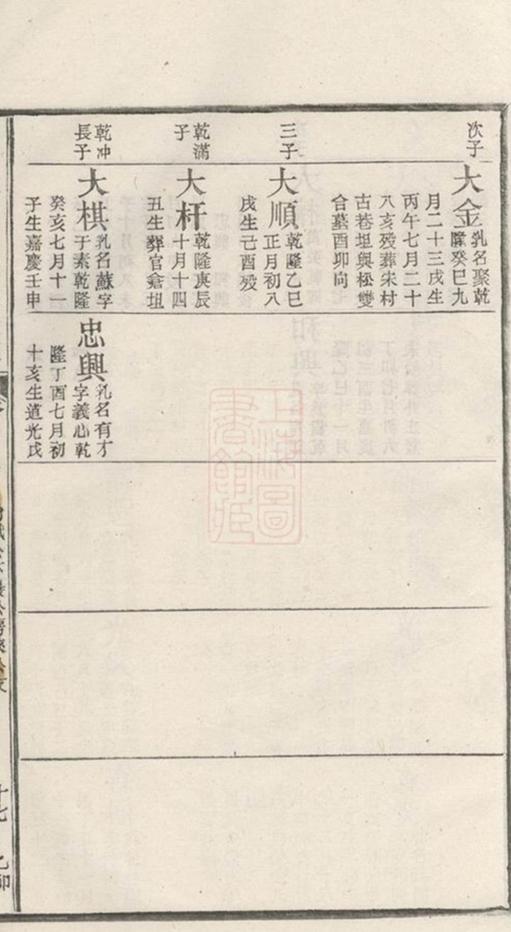 次子
大金
乳名聚乾
隆癸巳九
月二十三戌生
丙午七月二十
八亥殁葬宋村
古巷坦與松燮
合墓酉卯向
三子
大順
乾隆乙巳
正月初八
戌生己酉殁
乾滿
子
大杆
乾隆庚辰
十月十四
丑生葬官倉坦
乾冲
長子
大棋
乳名蘇字
于素乾隆
癸亥七月十一
子生嘉慶壬申
忠興
乳名有才
字義心乾
隆丁酉七月初
十亥生道光戊
上海圖
書館藏